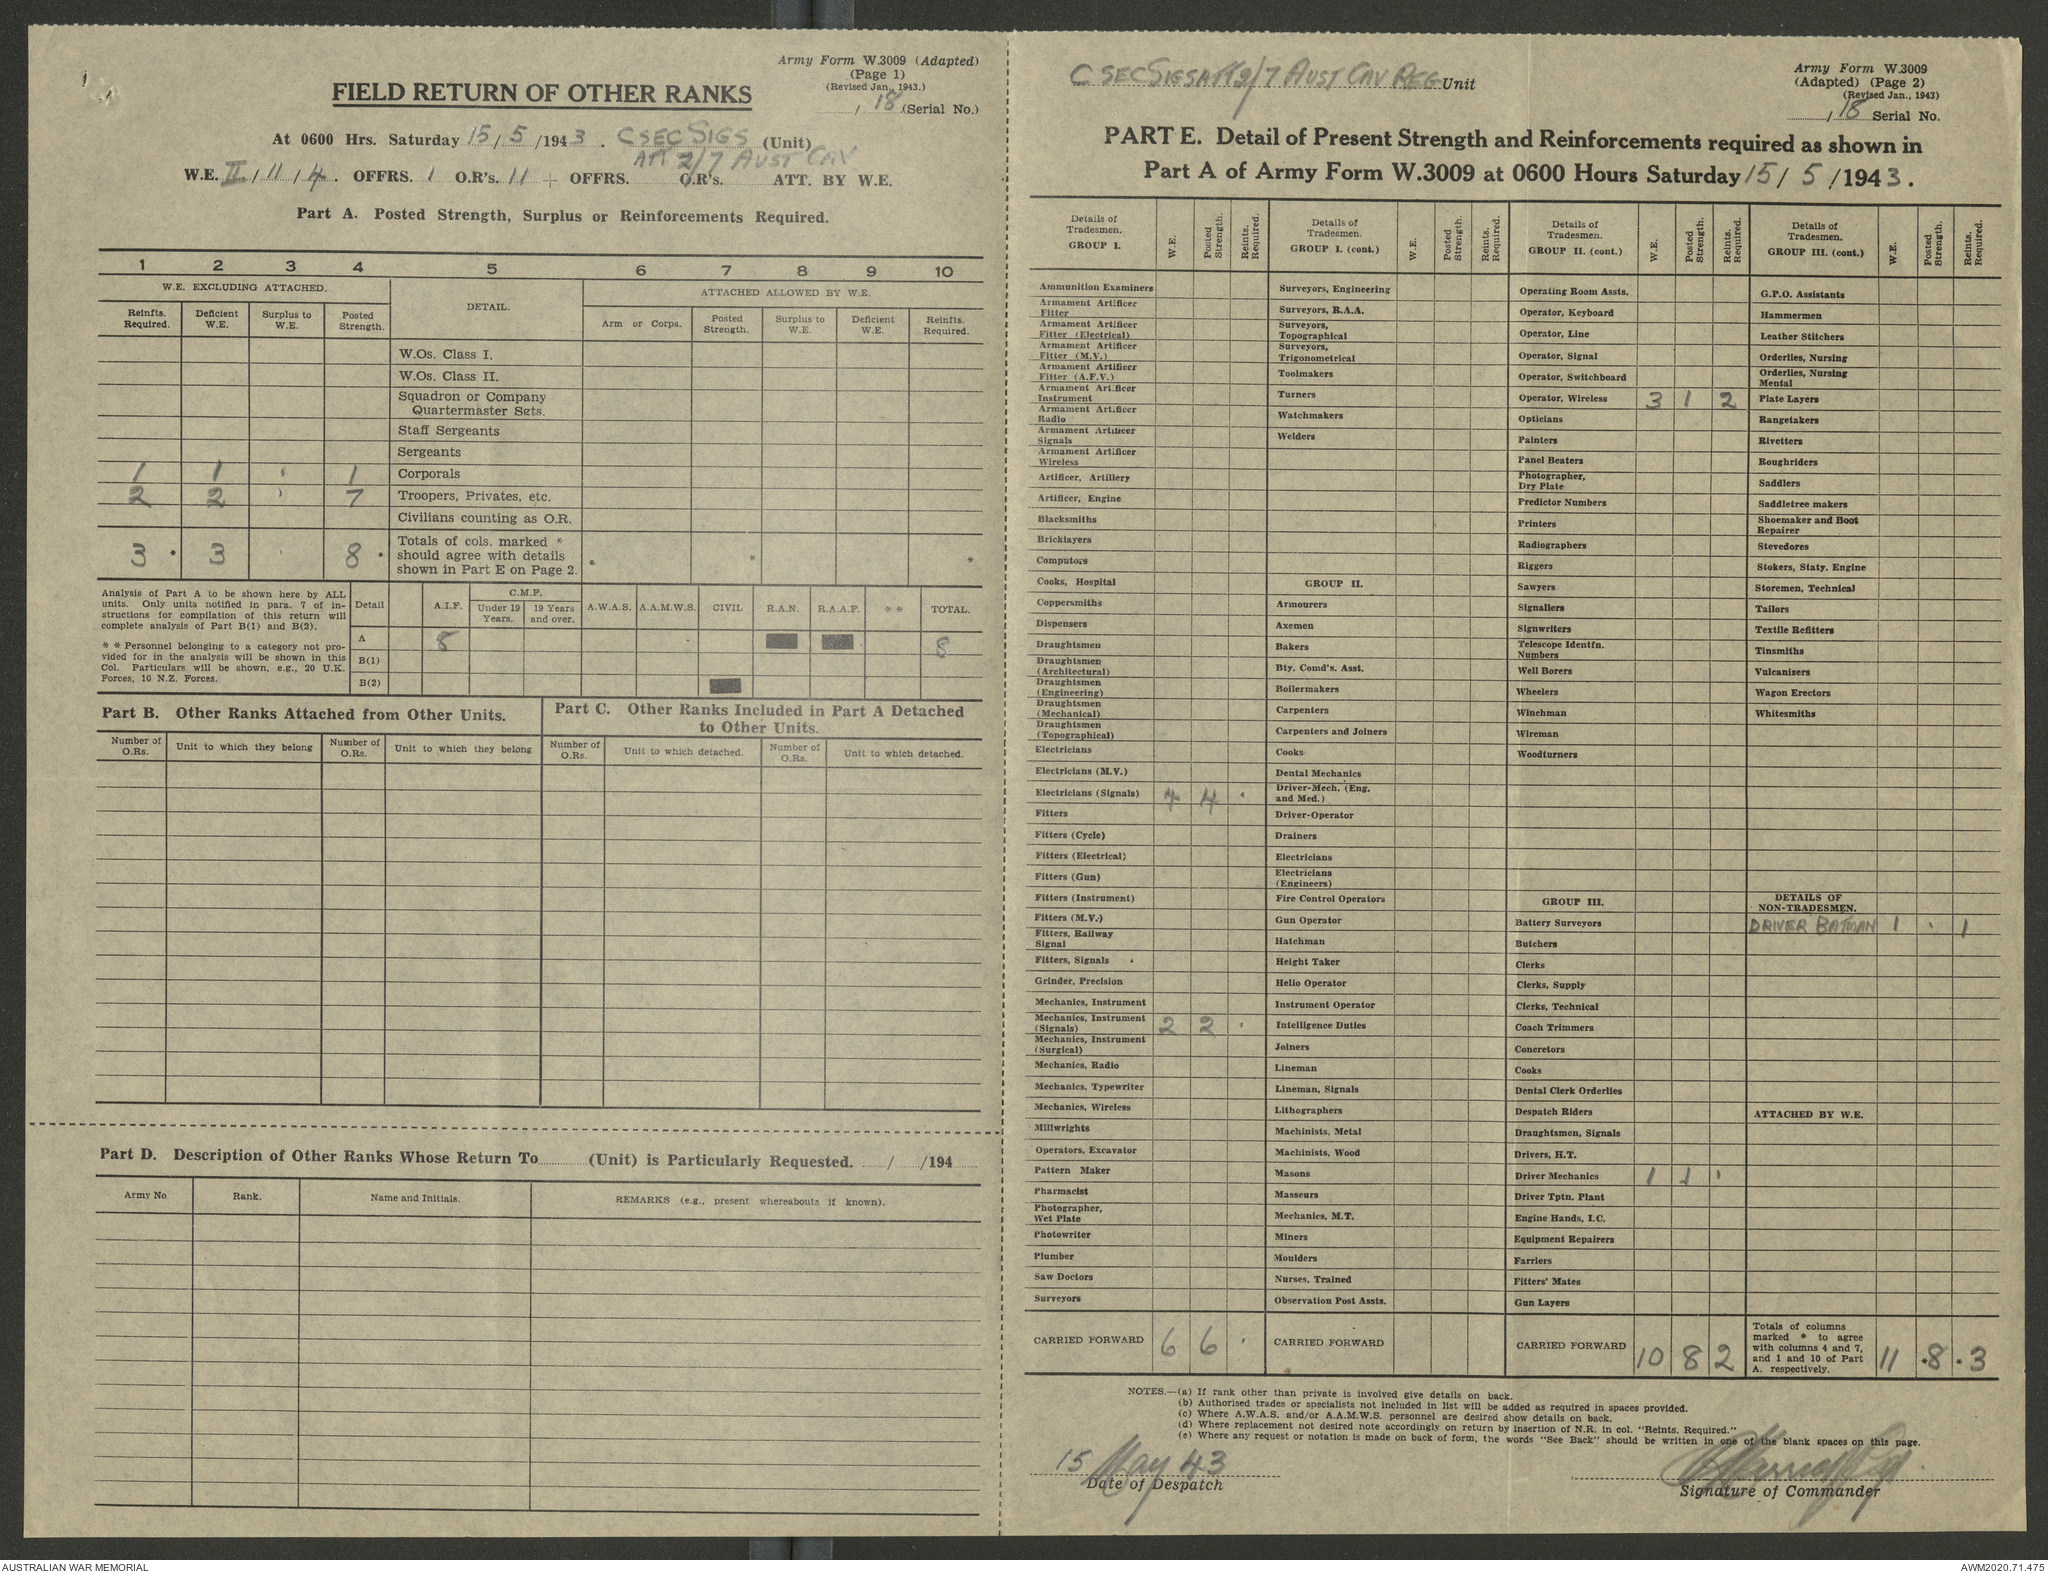 Army Form W.3009 (Adapted)
(Page 1)
(Revised Jan., 1943.)
/ 18 (Serial No.)
FIELD RETURN OF OTHER RANKS
At 0600 Hrs. Saturday 15/5/1943. C SEC SIGS (Unit)
ATT 2/7 AUST CAV
W.E. II/11/4. OFFRS. 1 O.R's. 11 + OFFRS. O.R's. ATT. BY W.E.
Part A. Posted Strength, Surplus or Reinforcements Required.
1 2 3 4 5 6 7 8 9 10
W.E. EXCLUDING ATTACHED. DETAIL. ATTACHED ALLOWED BY W.E.
Reinfts. Required. Deficient W.E. Surplus to W.E. Posted Strength. Arm or Corps. Posted Strength. Surplus to W.E. Deficient W.E. Reinfts. Required.
W.Os. Class I.
W.Os. Class II.
Squadron or Company Quartermaster Sgts.
Staff Sergeants
Sergeants
1 1 ' 1 Corporals
2 2 ' 7 Troopers, Privates, etc.
Civilians counting as O.R.
3 * 3 8 * Totals of cols. marked * should agree with details shown in Part E on Page 2. * * *
Analysis of Part A to be shown here by ALL units. Only units notified in para. 7 of instructions for compilation of this return will complete analysis of Part B(1) and B(2).
* * Personnel belonging to a category not provided for in the analysis will be shown in this Col. Particulars will be shown, e.g., 20 U.K. Forces, 10 N.Z. Forces.
Detail A.I.F. C.M.F. Under 19 Years. 19 Years and over. A.W.A.S. A.A.M.W.S. CIVIL R.A.N. R.A.A.F. * * TOTAL.
A 8 8
B(1)
B(2)
Part B. Other Ranks Attached from Other Units.
Number of O.Rs. Unit to which they belong Number of O.Rs. Unit to which they belong
Part C. Other Ranks Included in Part A Detached to Other Units.
Number of O.Rs. Unit to which detached. Number of O.Rs. Unit to which detached.
Part D. Description of Other Ranks Whose Return To (Unit) is Particularly Requested. / /194
Army No Rank. Name and Initials. REMARKS (e.g., present whereabouts if known).
C SEC SIGS ATT 2/7 AUST CAV REG Unit
Army Form W.3009
(Adapted) (Page 2)
(Revised Jan., 1943)
/18 Serial No.
PART E. Detail of Present Strength and Reinforcements required as shown in
Part A of Army Form W.3009 at 0600 Hours Saturday 15/5/1943.
Details of Tradesmen. GROUP I. W.E. Posted Strength. Reints. Required.
Ammunition Examiners
Armament Artificer Fitter
Armament Artificer Fitter (Electrical)
Armament Artificer Fitter (M.V.)
Armament Artificer Fitter (A.F.V.)
Armament Artificer Instrument
Armament Artificer Radio
Armament Artificer Signals
Armament Artificer Wireless
Artificer, Artillery
Artificer, Engine
Blacksmiths
Bricklayers
Computors
Cooks, Hospital
Coppersmiths
Dispensers
Draughtsmen
Draughtsmen (Architectural)
Draughtsmen (Engineering)
Draughtsmen (Mechanical)
Draughtsmen (Topographical)
Electricians
Electricians (M.V.)
Electricians (Signals) 4 4 '
Fitters
Fitters (Cycle)
Fitters (Electrical)
Fitters (Gun)
Fitters (Instrument)
Fitters (M.V.)
Fitters, Railway Signal
Fitters, Signals
Grinder, Precision
Mechanics, Instrument
Mechanics, Instrument (Signals) 2 2 '
Mechanics, Instrument (Surgical)
Mechanics, Radio
Mechanics, Typewriter
Mechanics, Wireless
Millwrights
Operators, Excavator
Pattern Maker
Pharmacist
Photographer, Wet Plate
Photowriter
Plumber
Saw Doctors
Surveyors
CARRIED FORWARD 6 6 '
Details of Tradesmen. GROUP I. (cont.) W.E. Posted Strength. Reints. Required.
Surveyors, Engineering
Surveyors, R.A.A.
Surveyors, Topographical
Surveyors, Trigonometrical
Toolmakers
Turners
Watchmakers
Welders
GROUP II.
Armourers
Axemen
Bakers
Bty. Comd's. Asst.
Boilermakers
Carpenters
Carpenters and Joiners
Cooks
Dental Mechanics
Driver-Mech. (Eng. and Med.)
Driver-Operator
Drainers
Electricians
Electricians (Engineers)
Fire Control Operators
Gun Operator
Hatchman
Height Taker
Helio Operator
Instrument Operator
Intelligence Duties
Joiners
Lineman
Lineman, Signals
Lithographers
Machinists, Metal
Machinists, Wood
Masons
Masseurs
Mechanics, M.T.
Miners
Moulders
Nurses, Trained
Observation Post Assts.
CARRIED FORWARD
Details of Tradesmen. GROUP II. (cont.) W.E. Posted Strength. Reints. Required.
Operating Room Assts.
Operator, Keyboard
Operator, Line
Operator, Signal
Operator, Switchboard
Operator, Wireless 3 1 2
Opticians
Painters
Panel Beaters
Photographer, Dry Plate
Predictor Numbers
Printers
Radiographers
Riggers
Sawyers
Signallers
Signwriters
Telescope Identfn. Numbers
Well Borers
Wheelers
Winchman
Wireman
Woodturners
GROUP III.
Battery Surveyors
Butchers
Clerks
Clerks, Supply
Clerks, Technical
Coach Trimmers
Concretors
Cooks
Dental Clerk Orderlies
Despatch Riders
Draughtsmen, Signals
Drivers, H.T.
Driver Mechanics 1 1 '
Driver Tptn. Plant
Engine Hands, I.C.
Equipment Repairers
Farriers
Fitters' Mates
Gun Layers
CARRIED FORWARD 10 8 2
Details of Tradesmen. GROUP III. (cont.) W.E. Posted Strength. Reints. Required.
G.P.O. Assistants
Hammermen
Leather Stitchers
Orderlies, Nursing
Orderlies, Nursing Mental
Plate Layers
Rangetakers
Rivetters
Roughriders
Saddlers
Saddletree makers
Shoemaker and Boot Repairer
Stevedores
Stokers, Staty. Engine
Storemen, Technical
Tailors
Textile Refitters
Tinsmiths
Vulcanizers
Wagon Erectors
Whitesmiths
DETAILS OF NON-TRADESMEN.
DRIVER BATMAN 1 ' 1
ATTACHED BY W.E.
Totals of columns marked * to agree with columns 4 and 7, and 1 and 10 of Part A. respectively. 11 *8 *3
NOTES.—(a) If rank other than private is involved give details on back.
(b) Authorised trades or specialists not included in list will be added as required in spaces provided.
(c) Where A.W.A.S. and/or A.A.M.W.S. personnel are desired show details on back.
(d) Where replacement not desired note accordingly on return by insertion of N.R. in col. "Reints. Required."
(e) Where any request or notation is made on back of form, the words "See Back" should be written in one of the blank spaces on this page.
15 May 43
Date of Despatch
Signature of Commander
AUSTRALIAN WAR MEMORIAL
AWM2020.71.475